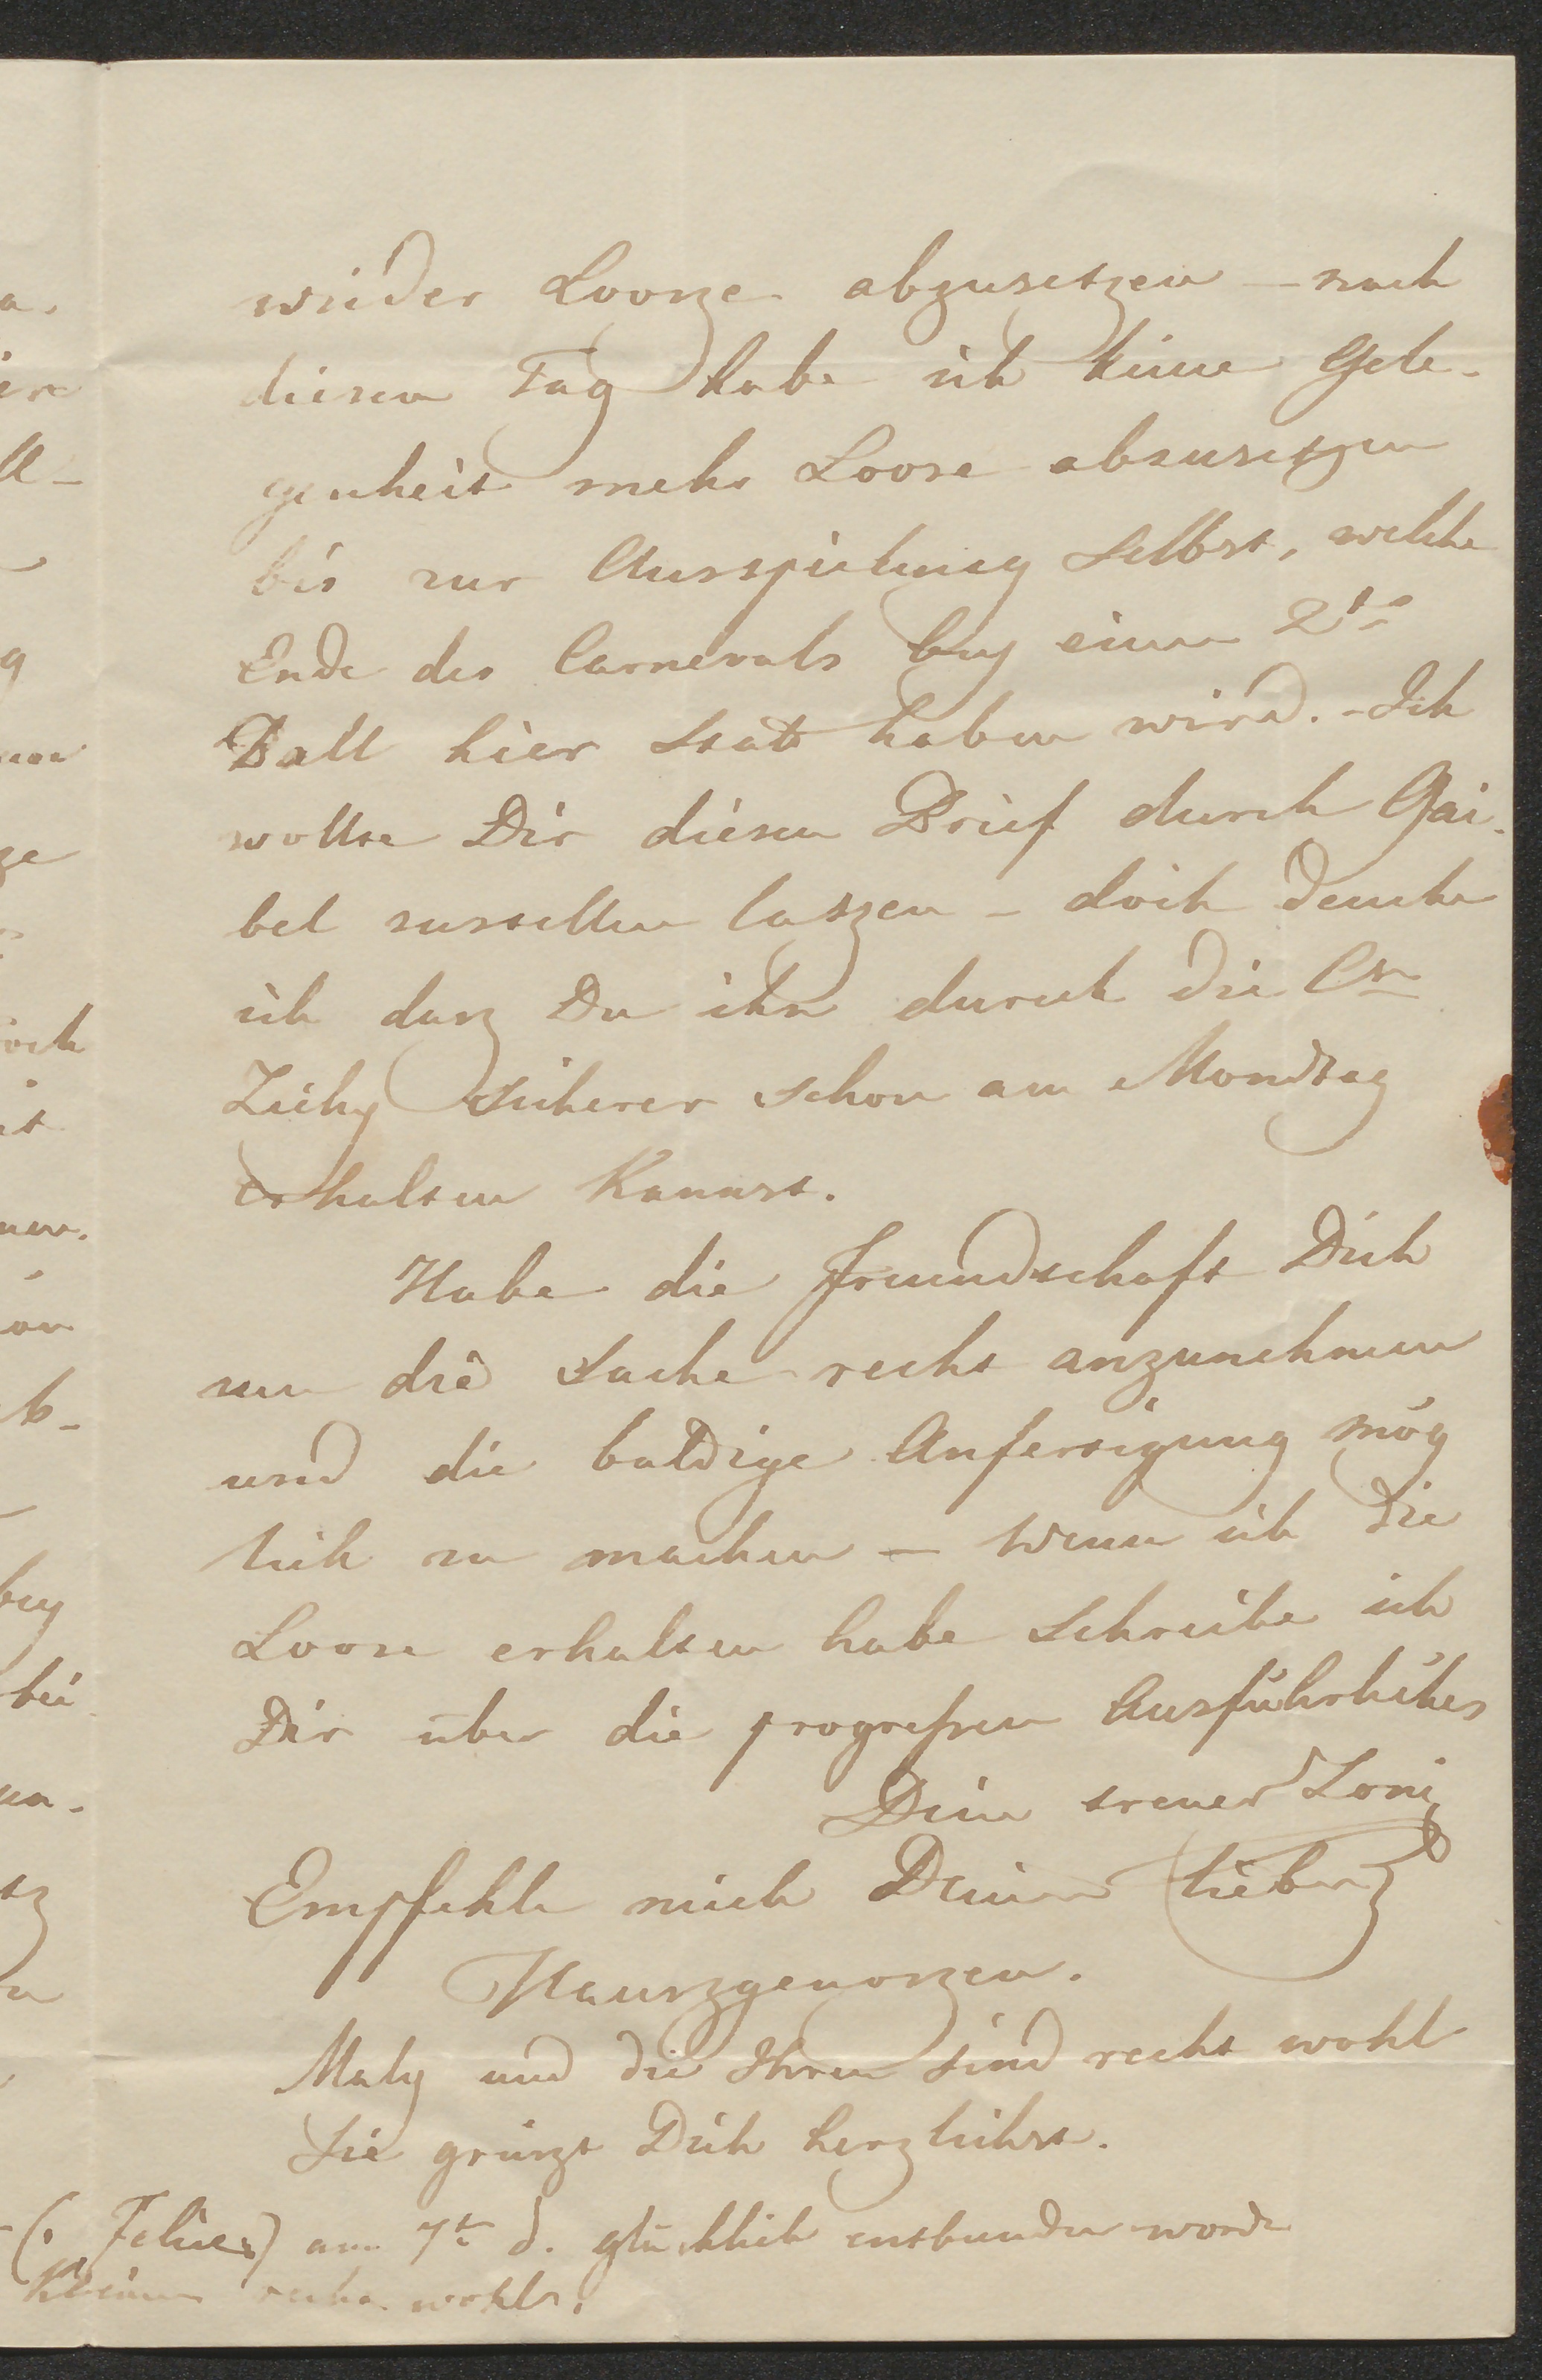 wieder Loosze abzusetzen — nach
diesen Tag habe ich keine Gele-
genheit mehr Loose abzusetzen
bis zur Ausspielung selbst, welche
Ende des Carnevals bey einen 2ten
Ball hier statt haben wird. - Ich
wollte Dir diesen Brief durch Gai-
bel zustellen laszen - doch denke
ich dasz Du ihn durch die Csn
Zichy sicherer schon am Mondtag
erhalten kannst.
Habe die Freundschaft Dich
um die Sache recht anzunehmen
und die baldige Anfertigung mög
lich zu machen — wenn ich die
Loose erhalten habe schreibe ich
Dir über die progreßen Ausführliches
Dein treuer Toni
Empfehle mich Deinen lieben
Hauszgenoszen.
Maly und die Ihren sind recht wohl
Sie grüszt Dich herzlichst.
am 7t d. glücklich entbunden worde
Kleinen recht wohl.